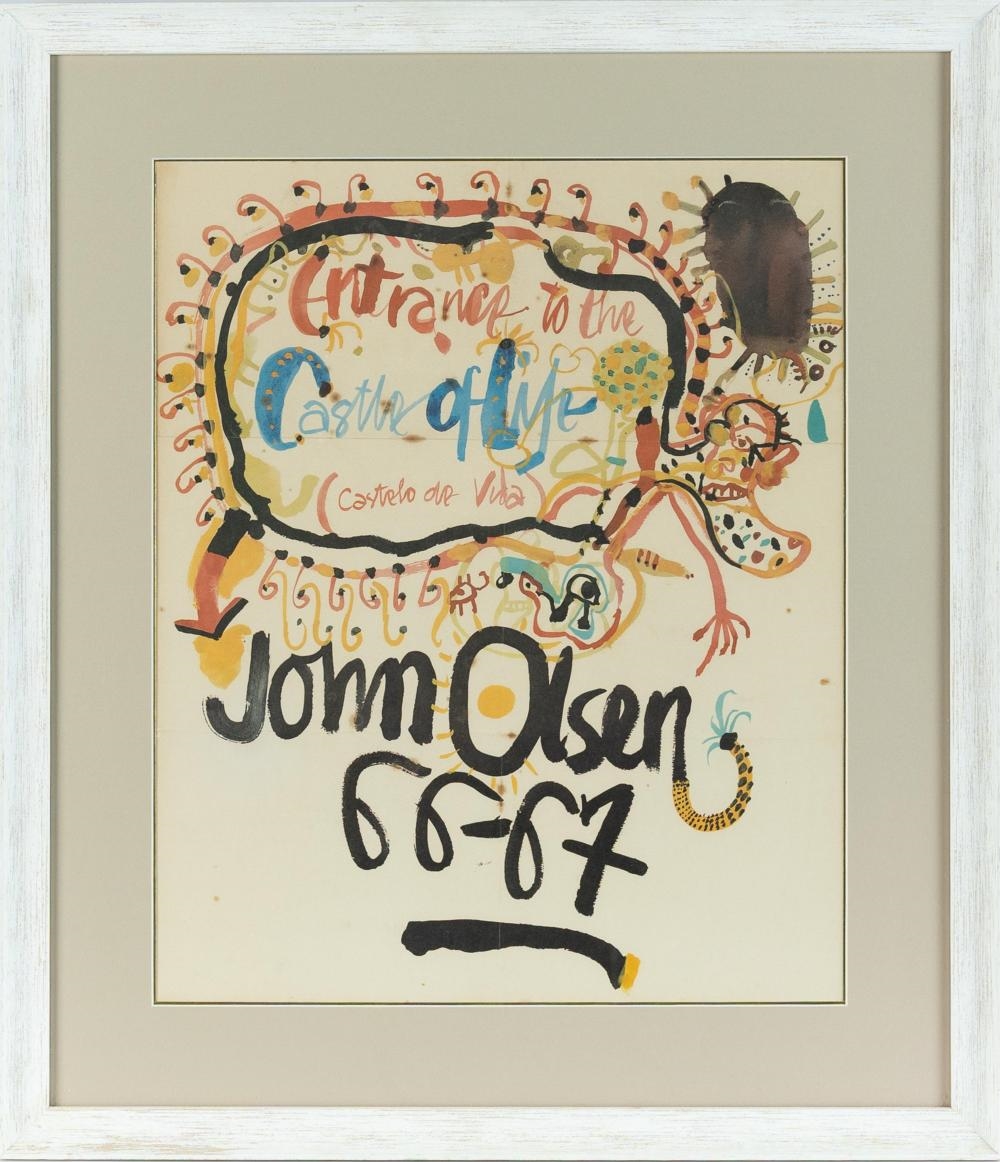 Entrance to the
Castle of Life
(Castelo de Vida)
John Olsen
66-67